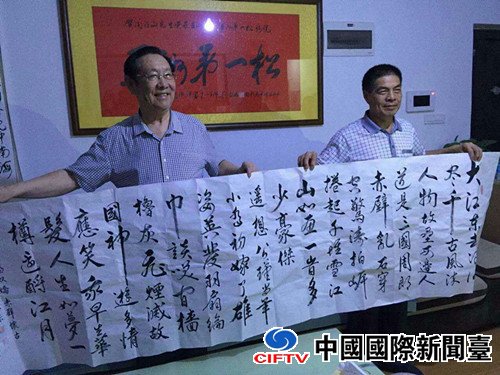 第一松
大江東去浪淘
尽千古風流
人物故壘西邊人
道是三國周郎
赤壁亂石穿
空驚濤拍岸
捲起千堆雪江
山如画一時多
少豪傑
遥想公瑾當年
小喬初嫁了雄
姿英發羽扇綸
巾談笑間檣
櫓灰飛煙滅故
國神遊多情
應笑我早生華
髮人生如夢一
樽還酹江月
CIFTV 中國國際新聞臺